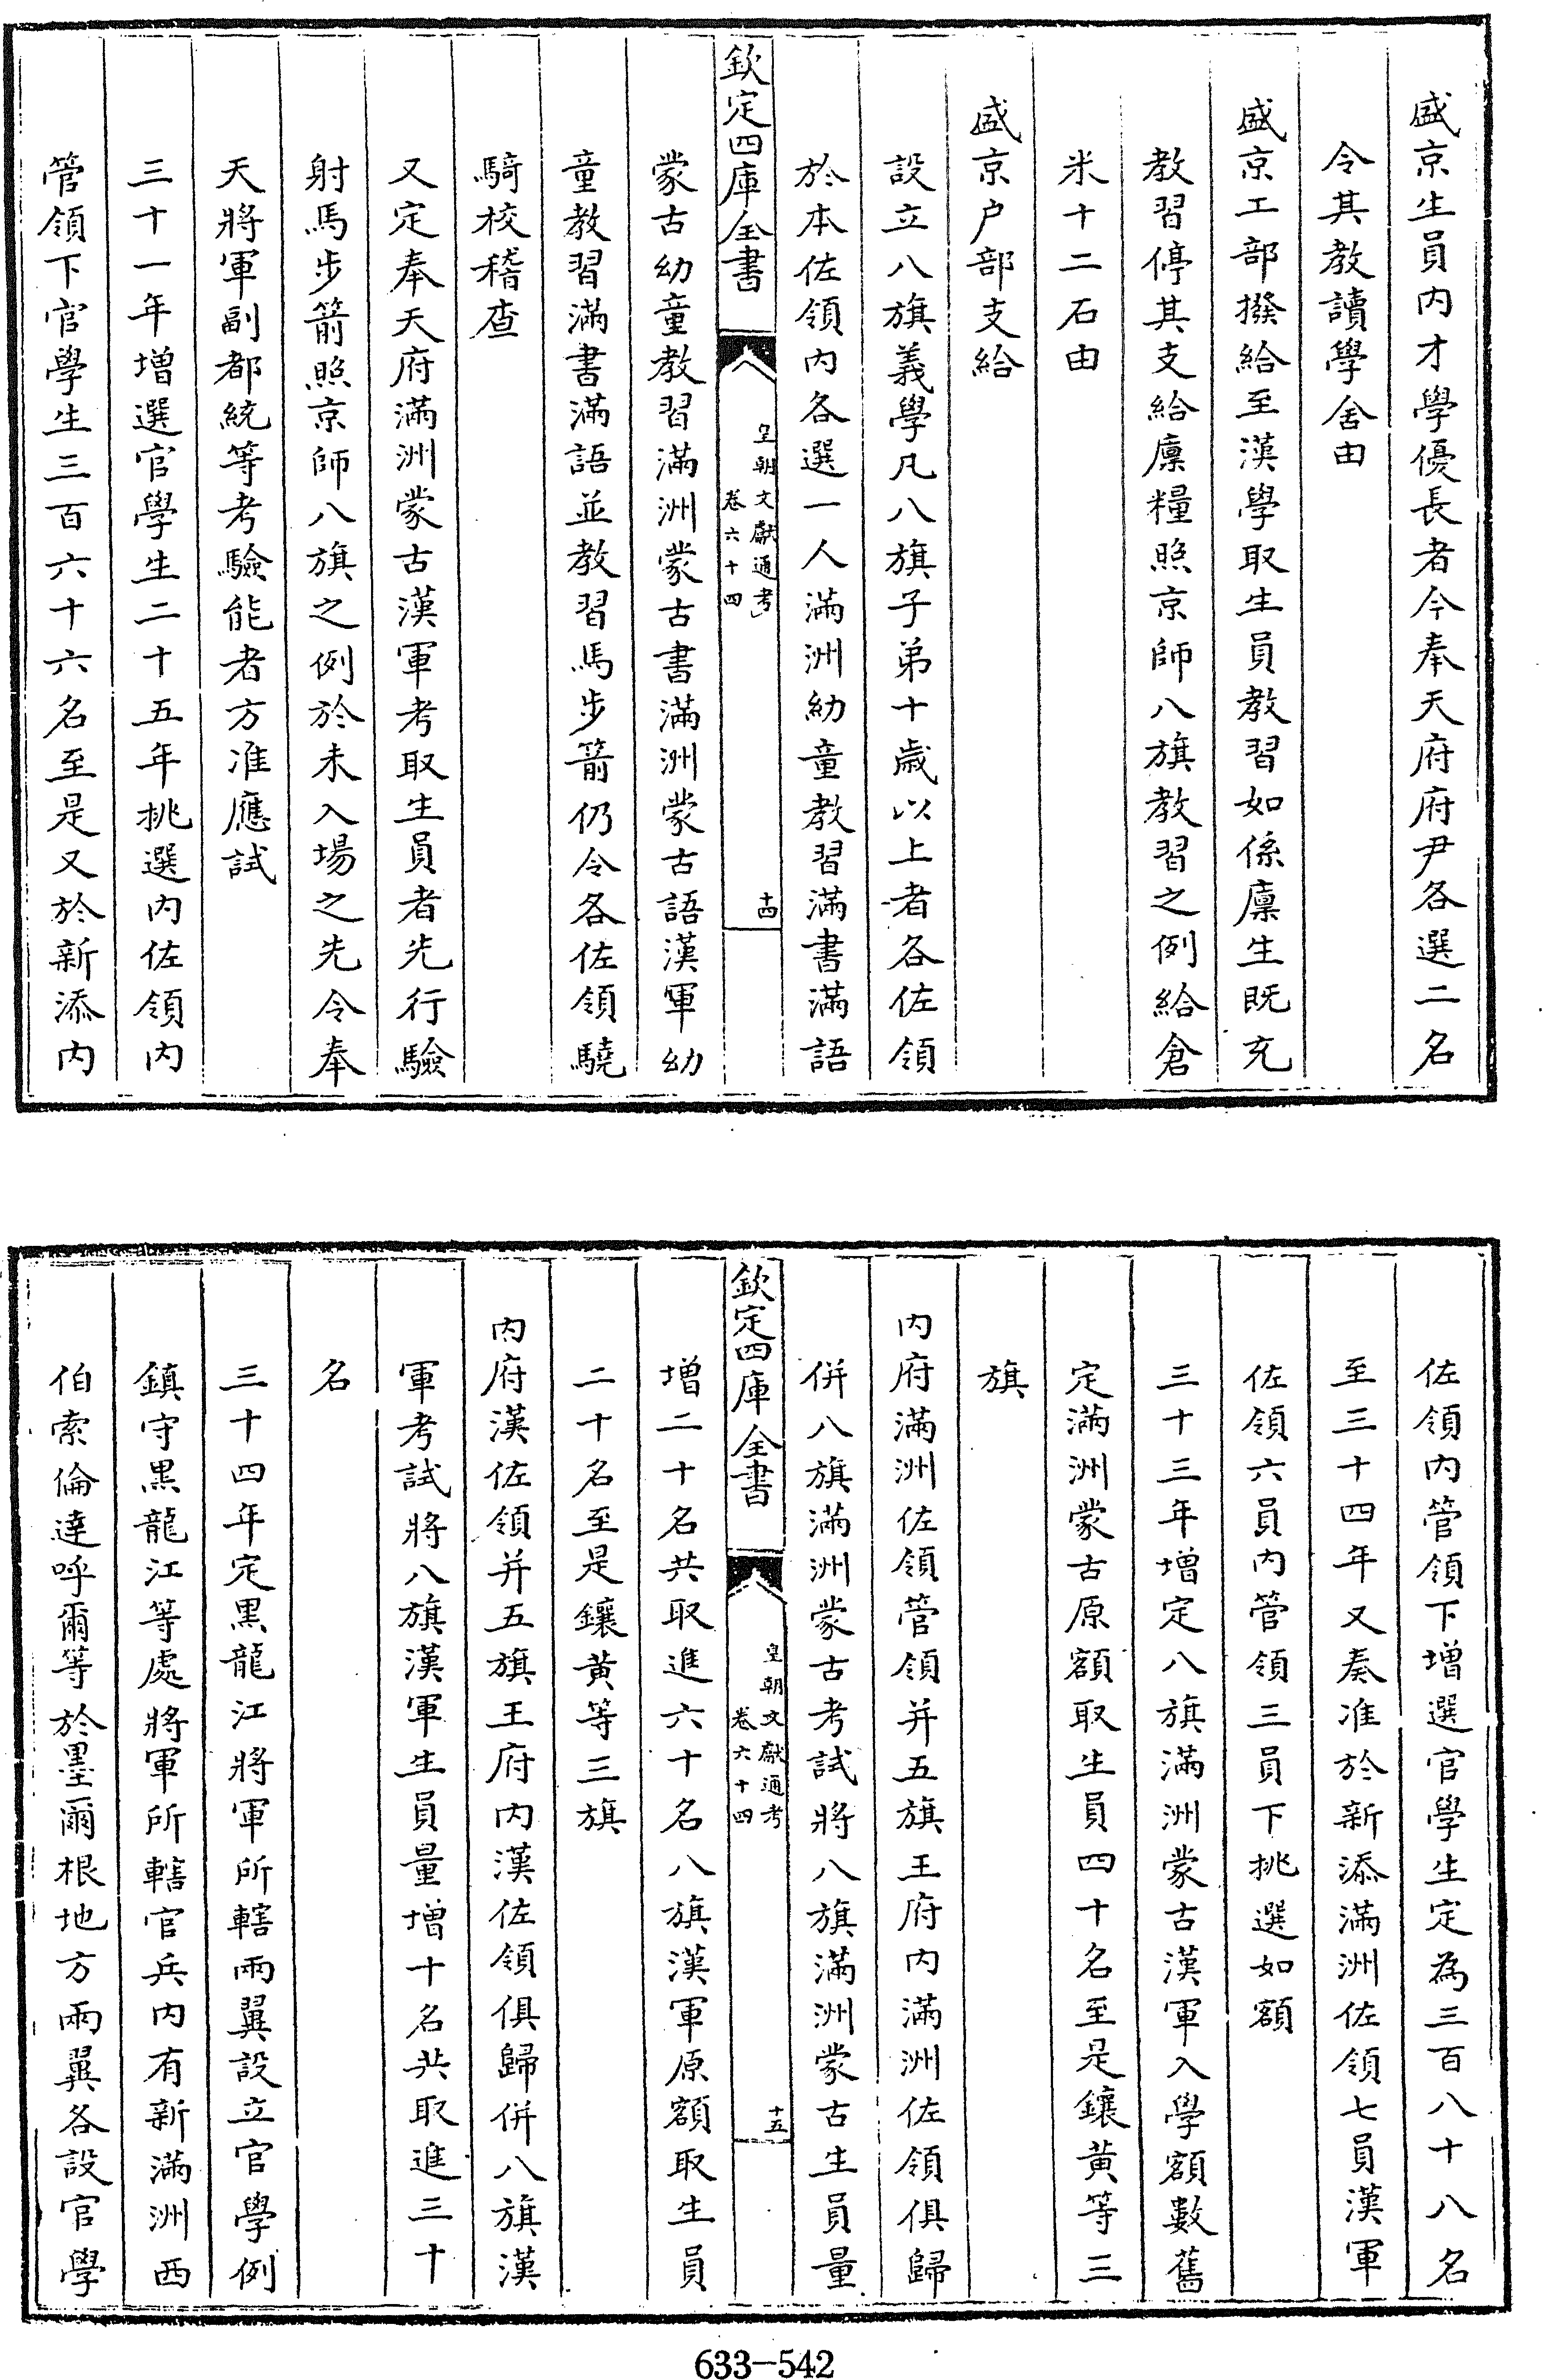 盛京生員内才學優長者今奉天府府尹各選二名
令其教讀學舍由
盛京工部撥給至漢學取生員教習如係廪生既充
教習停其支給廪糧照京師八旗教習之例給倉
米十二石由
盛京户部支給
設立八旗義學凡八旗子弟十歳以上者各佐領
於本佐領内各選一人滿洲幼童教習滿書滿語
欽定四庫全書
皇朝文獻通考
卷六十四
十四
蒙古幼童教習滿洲蒙古書滿洲蒙古語漢軍幼
童教習滿書滿語並教習馬步箭仍令各佐領驍
騎校稽查
又定奉天府滿洲蒙古漢軍考取生員者先行驗
射馬步箭照京師八旗之例於未入場之先令奉
天將軍副都統等考驗能者方准應試
三十一年增選官學生二十五年挑選内佐領内
管領下官學生三百六十六名至是又於新添内
佐領内管領下增選官學生定為三百八十八名
至三十四年又奏准於新添滿洲佐領七員漢軍
佐領六員内管領三員下挑選如額
三十三年增定八旗滿洲蒙古漢軍入學額數舊
定滿洲蒙古原額取生員四十名至是鑲黄等三
旗
内府滿洲佐領管領并五旗王府内滿洲佐領俱歸
併八旗滿洲蒙古考試將八旗滿洲蒙古生員量
欽定四庫全書
皇朝文獻通考
卷六十四
十五
增二十名共取進六十名八旗漢軍原額取生員
二十名至是鑲黄等三旗
内府漢佐領并五旗王府内漢佐領俱歸併八旗漢
軍考試將八旗漢軍生員量增十名共取進三十
名
三十四年定黑龍江將軍所轄兩翼設立官學例
鎮守黑龍江等處將軍所轄官兵内有新滿洲西
伯索倫達呼爾等於墨爾根地方兩翼各設官學
633-542